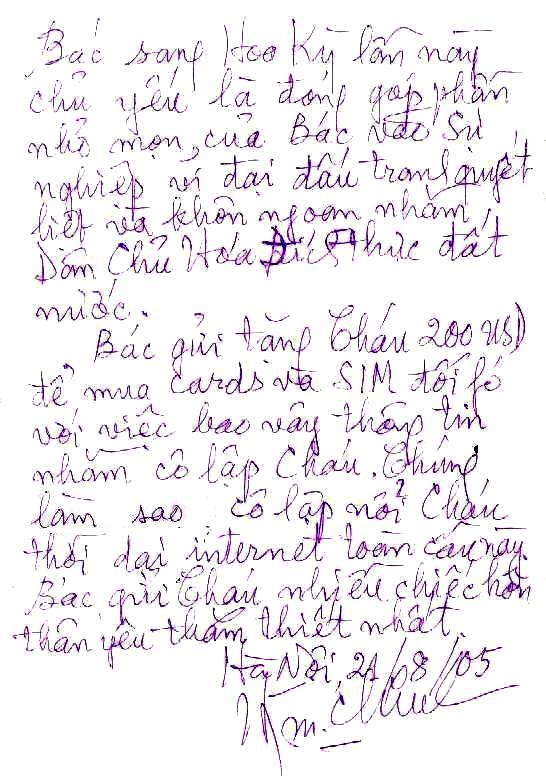 Bác sang Hoa Kỳ lần này
chủ yếu là đóng góp phần
nhỏ mọn của Bác vào Sự
nghiệp vĩ đại đấu tranh quyết
liệt và khôn ngoan nhằm
Dân Chủ Hóa đích thực đất
nước.
Bác gửi tặng Cháu 200 USD
để mua cards và SIM đối fó
với việc bao vây thông tin
nhằm cô lập Cháu. Chúng
làm sao cô lập nổi Cháu
thời đại internet toàn cầu này.
Bác gửi Cháu nhiều chiếc hôn
thân yêu thắm thiết nhất.
Hà Nội, 21/08/05